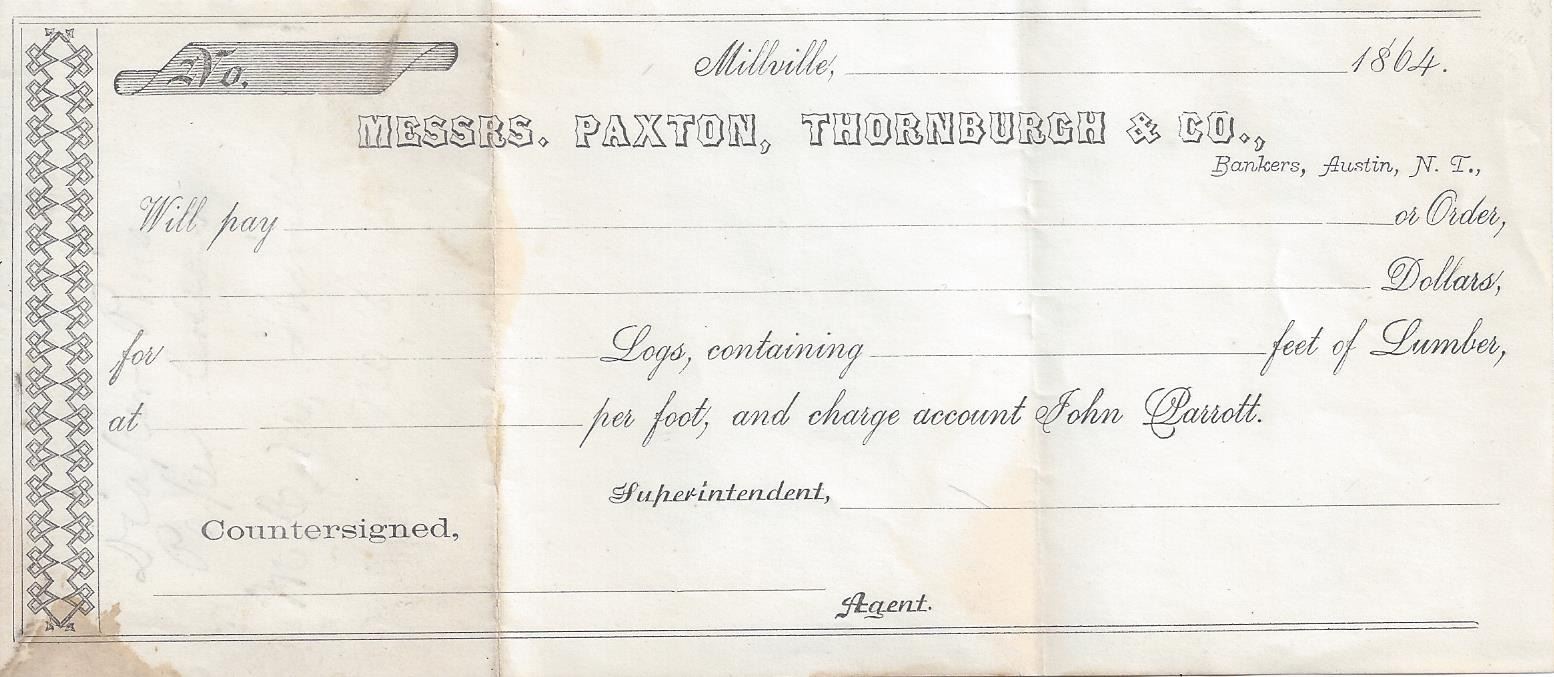 No.
Millville, 1864.
MESSRS. PAXTON, THORNBURGH & CO.,
Bankers, Austin, N. T.,
Will pay or Order,
Dollars,
for Logs, containing feet of Lumber,
at per foot, and charge account John Parrott.
Superintendent,
Countersigned,
Agent.